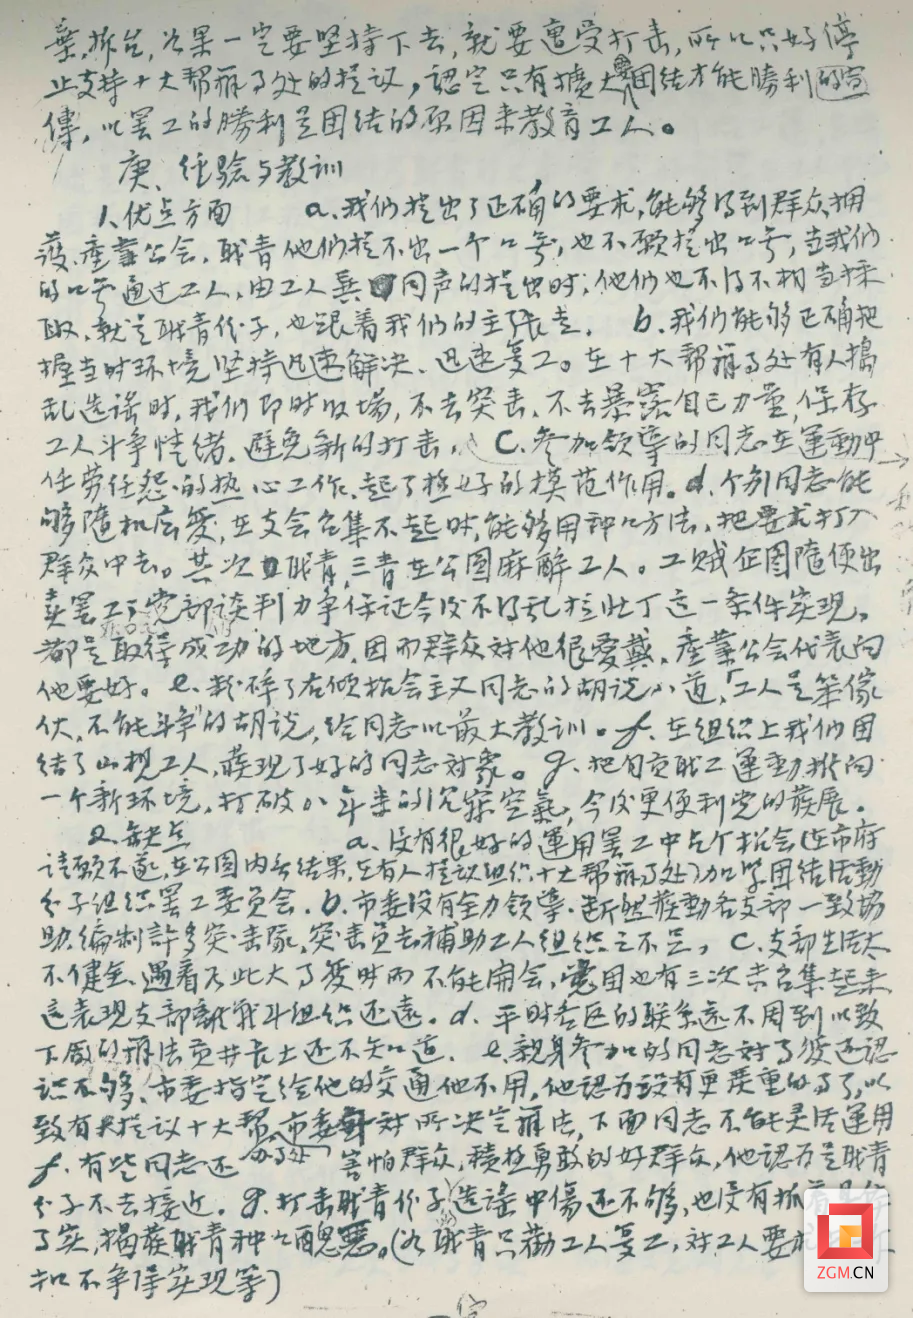 弃,拆台,如果一定要坚持下去,就要遭受打击,所以只好停
止支持十大帮办事处的提议,認定只有擴大团结才能勝利的宣
傳,以罢工的勝利是团结的原因来教育工人。
庚、经驗与教训
1、优点方面 a、我们提出了正确的要求,能够得到群众拥
護,產業公会、职青他们提不出一个口号,也不願提出口号,当我们
的口号通过工人,由工人異口同声的提出时,他们也不得不相当採
取,就是职青份子,也跟着我们的主张走。 b、我们能够正确把
握当时环境坚持迅速解决、迅速复工。在十大帮办事处有人搗
乱造谣时,我们即时收場,不去突击、不去暴露自己力量,保存
工人斗争情绪,避免新的打击。 C、参加领導的同志在運動中
任劳任怨的热心工作,起了極好的模范作用。d、个别同志能
够隨机应变,在支会召集不起时,能够用种々方法,把要求打入
群众中去。其次职青,三青在公园麻醉工人。工贼企图隨便出
卖罢工,党部谈判力争保证今後不得乱拉壮丁这一条件实现,
都是取得成功的地方,因而群众对他很爱戴,產業公会代表向
他要好。e、粉碎了右倾机会主义同志的胡说八道,「工人是笨傢
伙,不能斗争”的胡说,给同志以最大教训。f、在组织上我们团
结了工人,蔟現了好的同志对象。g、把自贡职工運動推向
一个新环境,打破八年来的沉寂空氣,今後更便利党的蔟展。
2、缺点 a、没有很好的運用罢工中几个机会(在市府
請願不遂,在公园内無结果,在有人提议组织十大帮办事处)加紧团结活動
分子组织罢工委员会。b、市委没有全力领導,断然蔟動各支部一致協
助,编制許多突击隊,突击员去補助工人组织之不足, C、支部生活太
不健全,遇着如此大事变时而不能開会,党团也有三次未召集起来
這表現支部離战斗组织还遠。d、平时各区的联系还不周到以致
下厰的办法貢井長土还不知道。 e、親身参加的同志对事变还認
识不够,市委指定给他的交通他不用,他認为没有更严重的事了,以
致有人提议十大帮办事处,市委对所决定办法,下面同志不能灵活運用
f、有些同志还害怕群众,積极勇敢的好群众,他認为是职青
分子不去接近。g、打击职青份子造谣中傷还不够,也没有抓着具体
事实,揭蔟职青种々醜恶。(如职青只勸工人复工,对工人要求
扣不争得实現等)
ZGM.CN